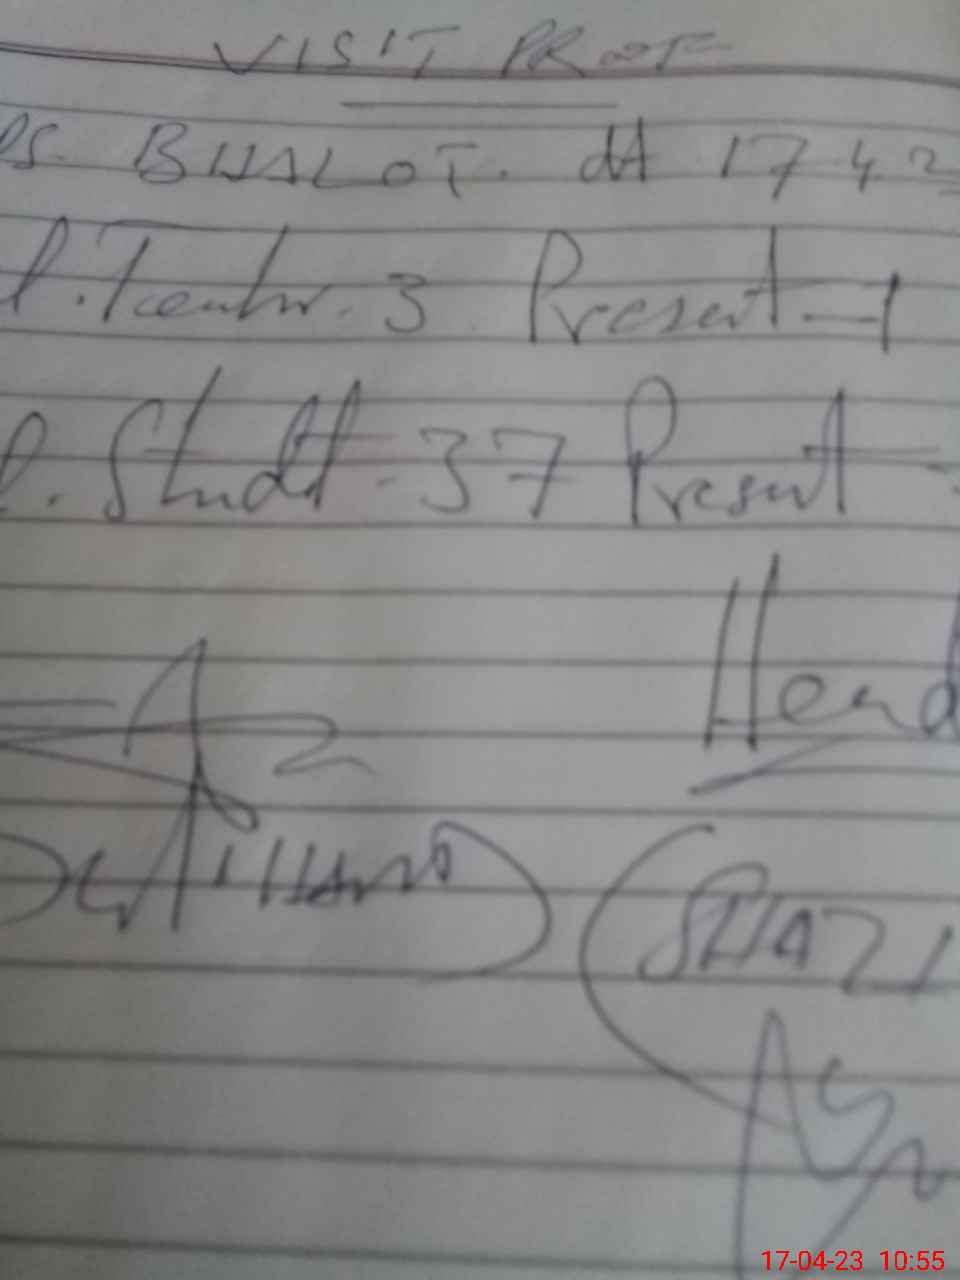 VISIT PROOF
PS. BHALOT. dt 17 4.2
l. Teacher. 3 Present - 1
l. Studt - 37 Present -
Head
17-04-23 10:55